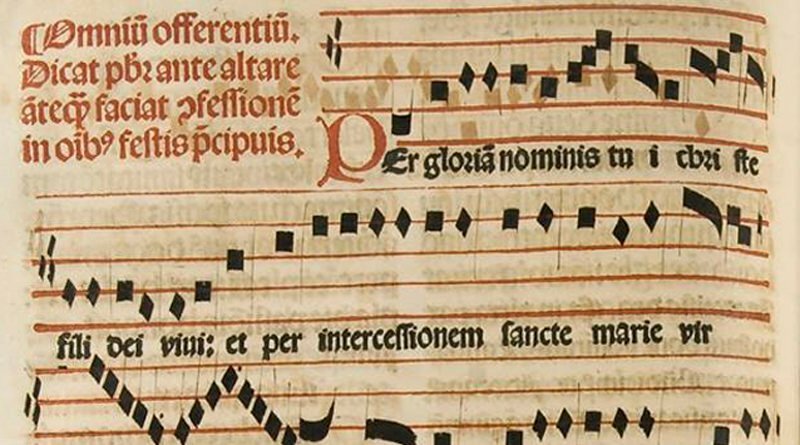 ¶Omniū offerentiū.
Dicat pb̄r ante altare
āteq̄ȝ faciat ↄfessionē
in oībꝰ festis p̄cipuis.
PEr gloriā nominis tu i chri ste
fili dei viui: et per intercessionem sancte marie vir